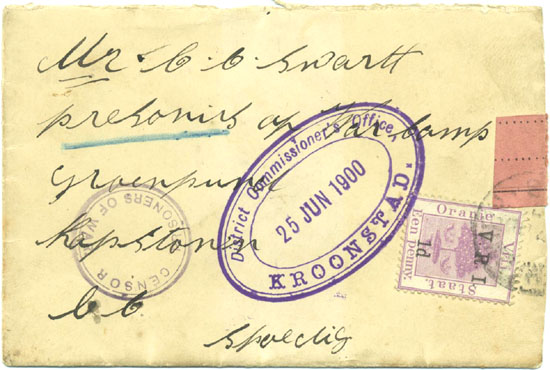 Mr. C. C. Swartt
presonirs of War, Camp
Groenpunt
Kapstown
C C
Spoedig
District Commissioner's Office,
25 JUN 1900
KROONSTAD.
CENSOR
PRISONERS OF WAR
Oranje Vrij
Een penny.
Staat.
V.R.I
1d